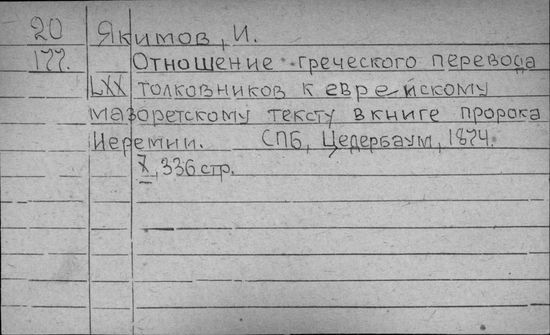 20 Якимов, И.
177. Отношение греческого перевода
LXX толковников к еврейскому
мазоретскому тексту в книге пророка
Иеремии. СПБ, Цедербаум, 1874.
X, 336 стр.